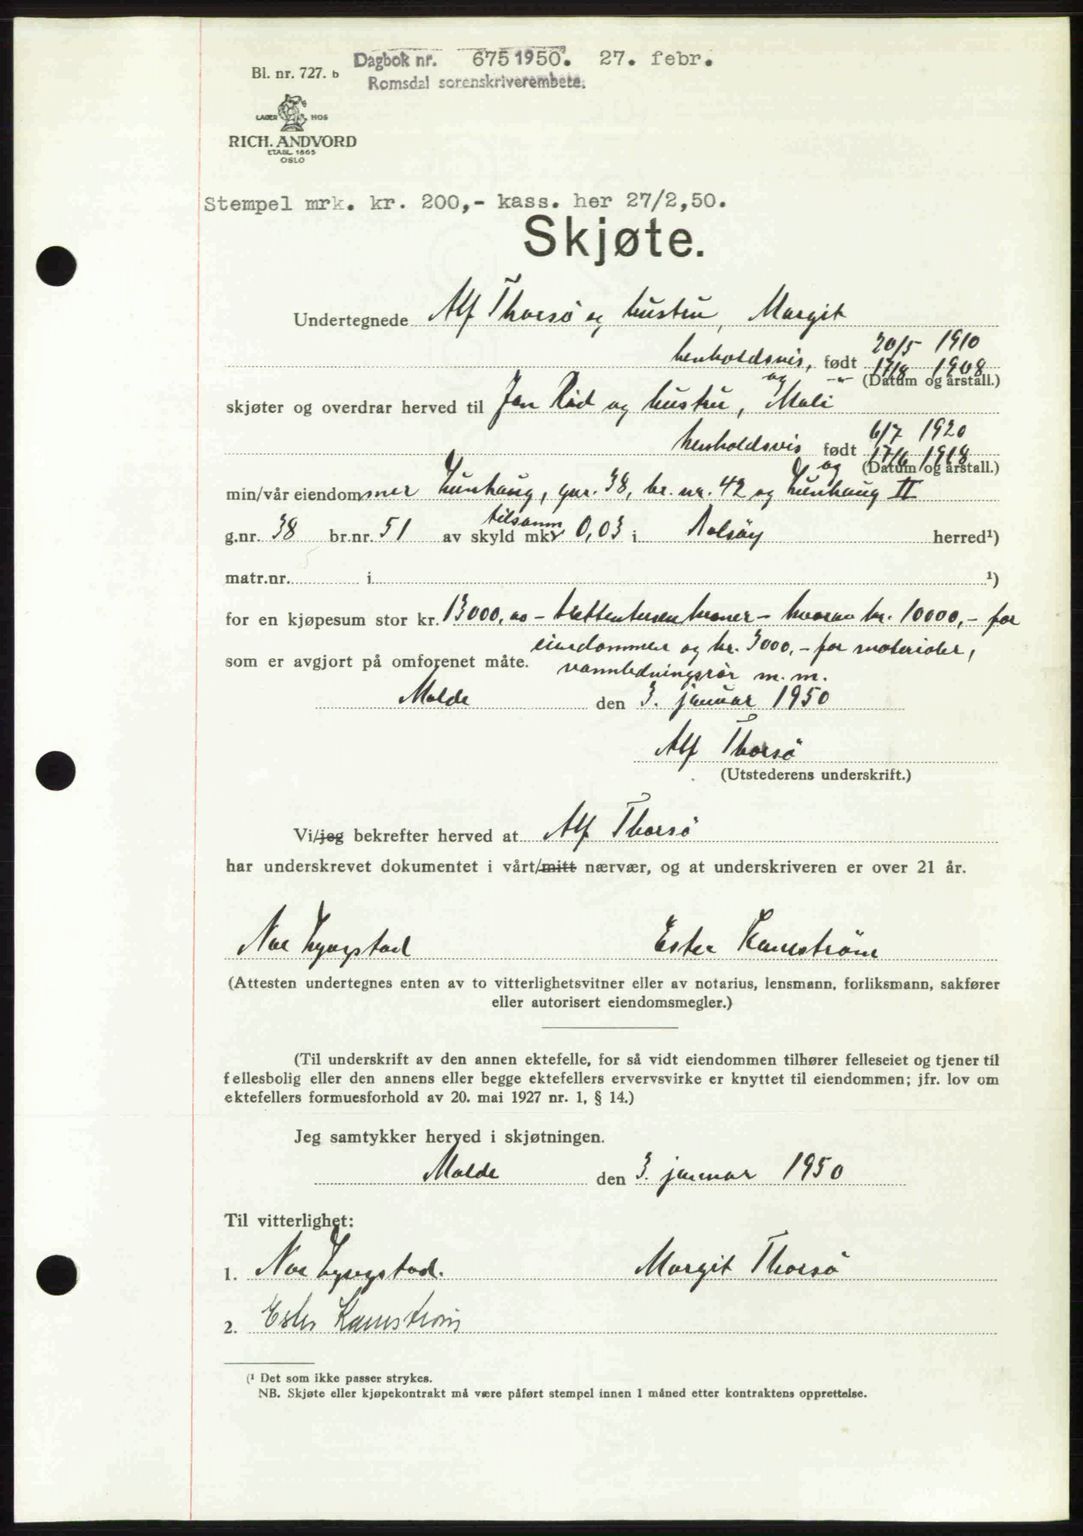 Dagbok nr. 675 1950. 27. febr.
Romsdal sorenskriverembete.
Bl. nr. 727. b
LAGER HOS
RICH. ANDVORD
ETABL. 1865
OSLO
Stempel mrk. kr. 200,- kass. her 27/2,50.
Skjøte.
Undertegnede Alf Thorsö og hustru, Margit
henholdsvis, født 20/5 1910
og 17/8 1908
(Datum og årstall.)
skjøter og overdrar herved til Jan Röd og hustru, Mali
henholdsvis født 6/7 1920
og 17/6 1918
(Datum og årstall.)
min/vår eiendommer Lunhaug, gnr. 38, br. nr. 42 og Lunhaug II
g.nr. 38 br.nr. 51 av skyld mkr tilsamm 0,03 i Bolsöy herred¹)
matr.nr. i ¹)
for en kjøpesum stor kr. 13000,00 - trettentusen kroner - hvorav kr. 10000,- for
eiendommer og kr. 3000,- for materialer,
som er avgjort på omforenet måte. vannledningsrör m.m.
Molde den 3. januar 1950
Alf Thorsö
(Utstederens underskrift.)
Vi/jeg bekrefter herved at Alf Thorsö
har underskrevet dokumentet i vårt/mitt nærvær, og at underskriveren er over 21 år.
Ester
(Attesten undertegnes enten av to vitterlighetsvitner eller av notarius, lensmann, forliksmann, sakfører
eller autorisert eiendomsmegler.)
(Til underskrift av den annen ektefelle, for så vidt eiendommen tilhører felleseiet og tjener til
fellesbolig eller den annens eller begge ektefellers ervervsvirke er knyttet til eiendommen; jfr. lov om
ektefellers formuesforhold av 20. mai 1927 nr. 1, § 14.)
Jeg samtykker herved i skjøtningen.
Molde den 3. januar 1950
Til vitterlighet:
1. Margit Thorsö
2. Ester
(¹ Det som ikke passer strykes.
NB. Skjøte eller kjøpekontrakt må være påført stempel innen 1 måned etter kontraktens opprettelse.